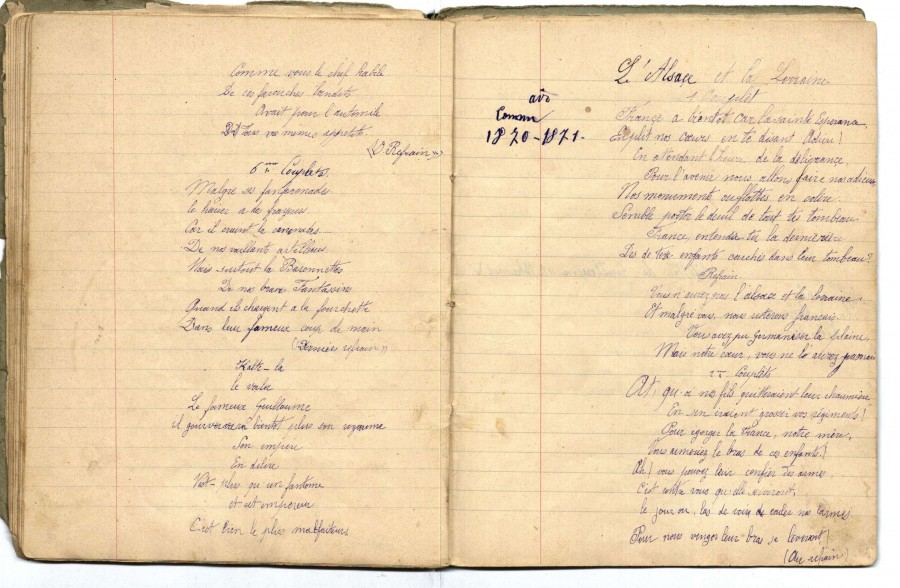 Comme vous le chef habile
De ces farouches bandits
Avait pour l'automile
Tous nos mimes apprets
(V Refrain)
6me Couplets
Malgre ses fanfaronades
le kaiser a les frayeurs
Car il craint les canonades
De nos vaillants artilleurs
Mais surtout la Baionnettes
De nos braves Fantassins
Quand ils chargent a la fourchette
Dans leur fameux coup de main
(Dernier refrain)
Halte-la
le vola
Le fameux Guillaume
il gouvernera bientot plus son royaume
Son empire
En delire
N'est plus qu'un fantome
et cet empereur
C'est bien le plus malfaiteurs
L'Alsace et la Lorraine
1 Couplet
air
Connu
1870-1871-
France a bientot car la sainte esperance
Emplit nos cœurs en te disant Adieu!
En attendant l'heure de la deligrance,
Pour l'avenir nous allons faire nos adieux
Nos monuments ou flottes en colere
Semble porter le deuil de tout tes tombeau
France, entends tu la derniere
Des de tes enfants couches dans leur tombeau?
Refrain
Vous n'aurez pas l'alsace et la loraine
Et malgre vous, nous resterons français
Vous avez pu germaniser la plaine,
Mais notre cœur, vous ne l'aurez jamais
2me Couplets
Ah, qu-a nos fils quitteraient leur chaumière
En s'en iraient grossir vos régiments!
Pour egorger la France, notre mère,
Vous armeriez le bras de ces enfants!
Ah! vous pouvez leur confier des armes
C'est contre vous qu'elle
le jour ou, las de voir de couler nos larmes
Pour nous venger leur bras se leveront!
(Au refrain)